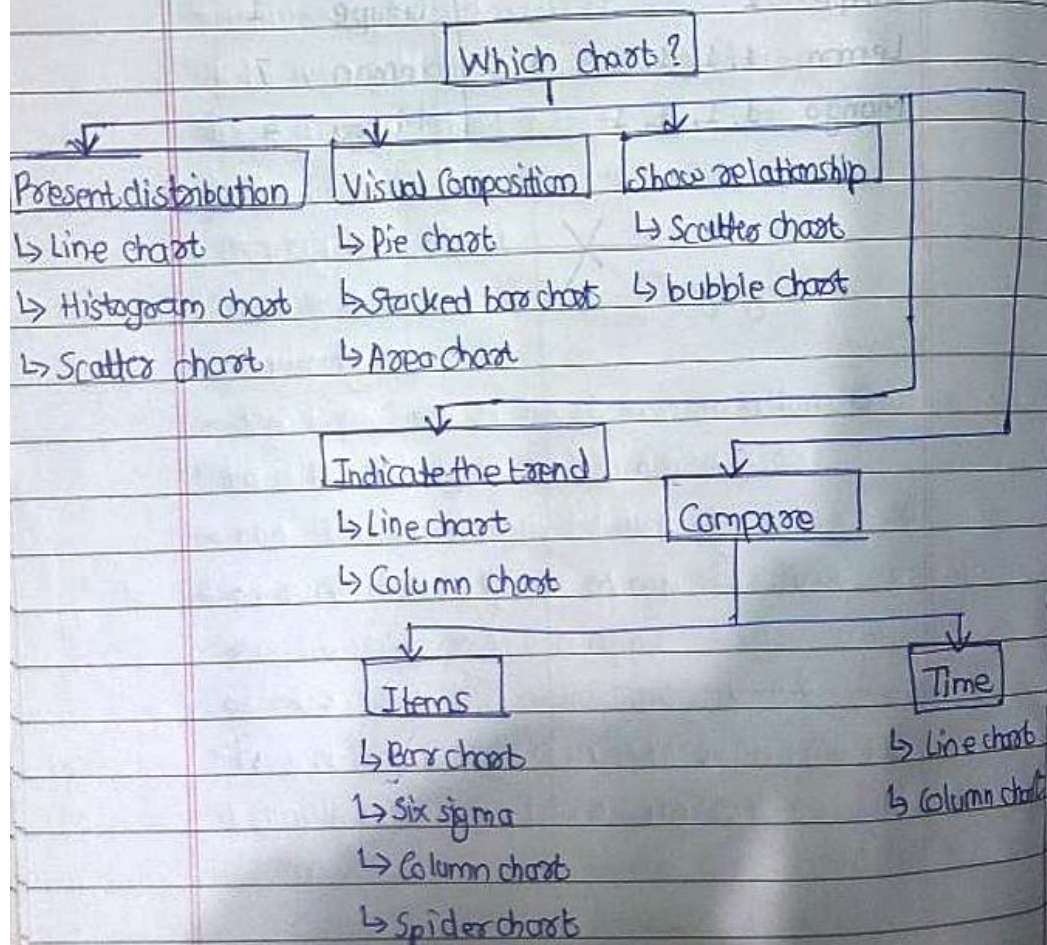 Which chart?
Present distribution
↳ Line chart
↳ Histogram chart
↳ Scatter chart
Visual Composition
↳ Pie chart
↳ Stacked bar chart
↳ Area chart
Show relationship
↳ Scatter chart
↳ bubble chart
Indicate the trend
↳ Line chart
↳ Column chart
Compare
Items
↳ Bar chart
↳ Six sigma
↳ Column chart
↳ Spider chart
Time
↳ Line chart
↳ Column chart